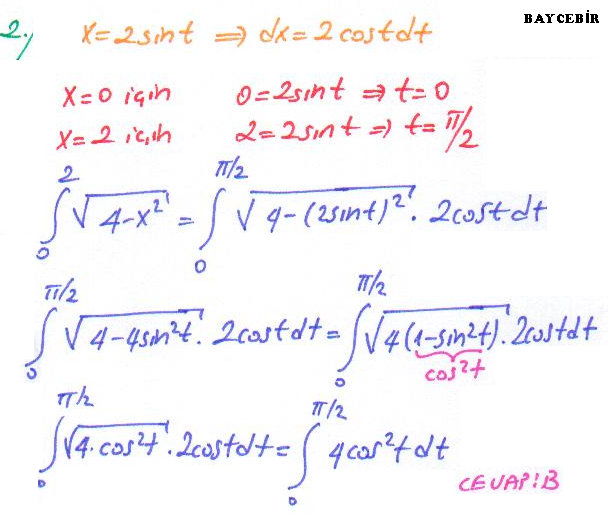 BAYCEBİR
2.) x=2sint ⇒ dx=2costdt
x=0 için 0=2sint ⇒ t=0
x=2 için 2=2sint ⇒ t=π/2
∫₀² √(4-x²) = ∫₀^(π/2) √(4-(2sint)²) . 2costdt
∫₀^(π/2) √(4-4sin²t) . 2costdt = ∫₀^(π/2) √(4(1-sin²t)) . 2costdt
cos²t
∫₀^(π/2) √(4.cos²t) . 2costdt = ∫₀^(π/2) 4cos²t dt
CEVAP:B